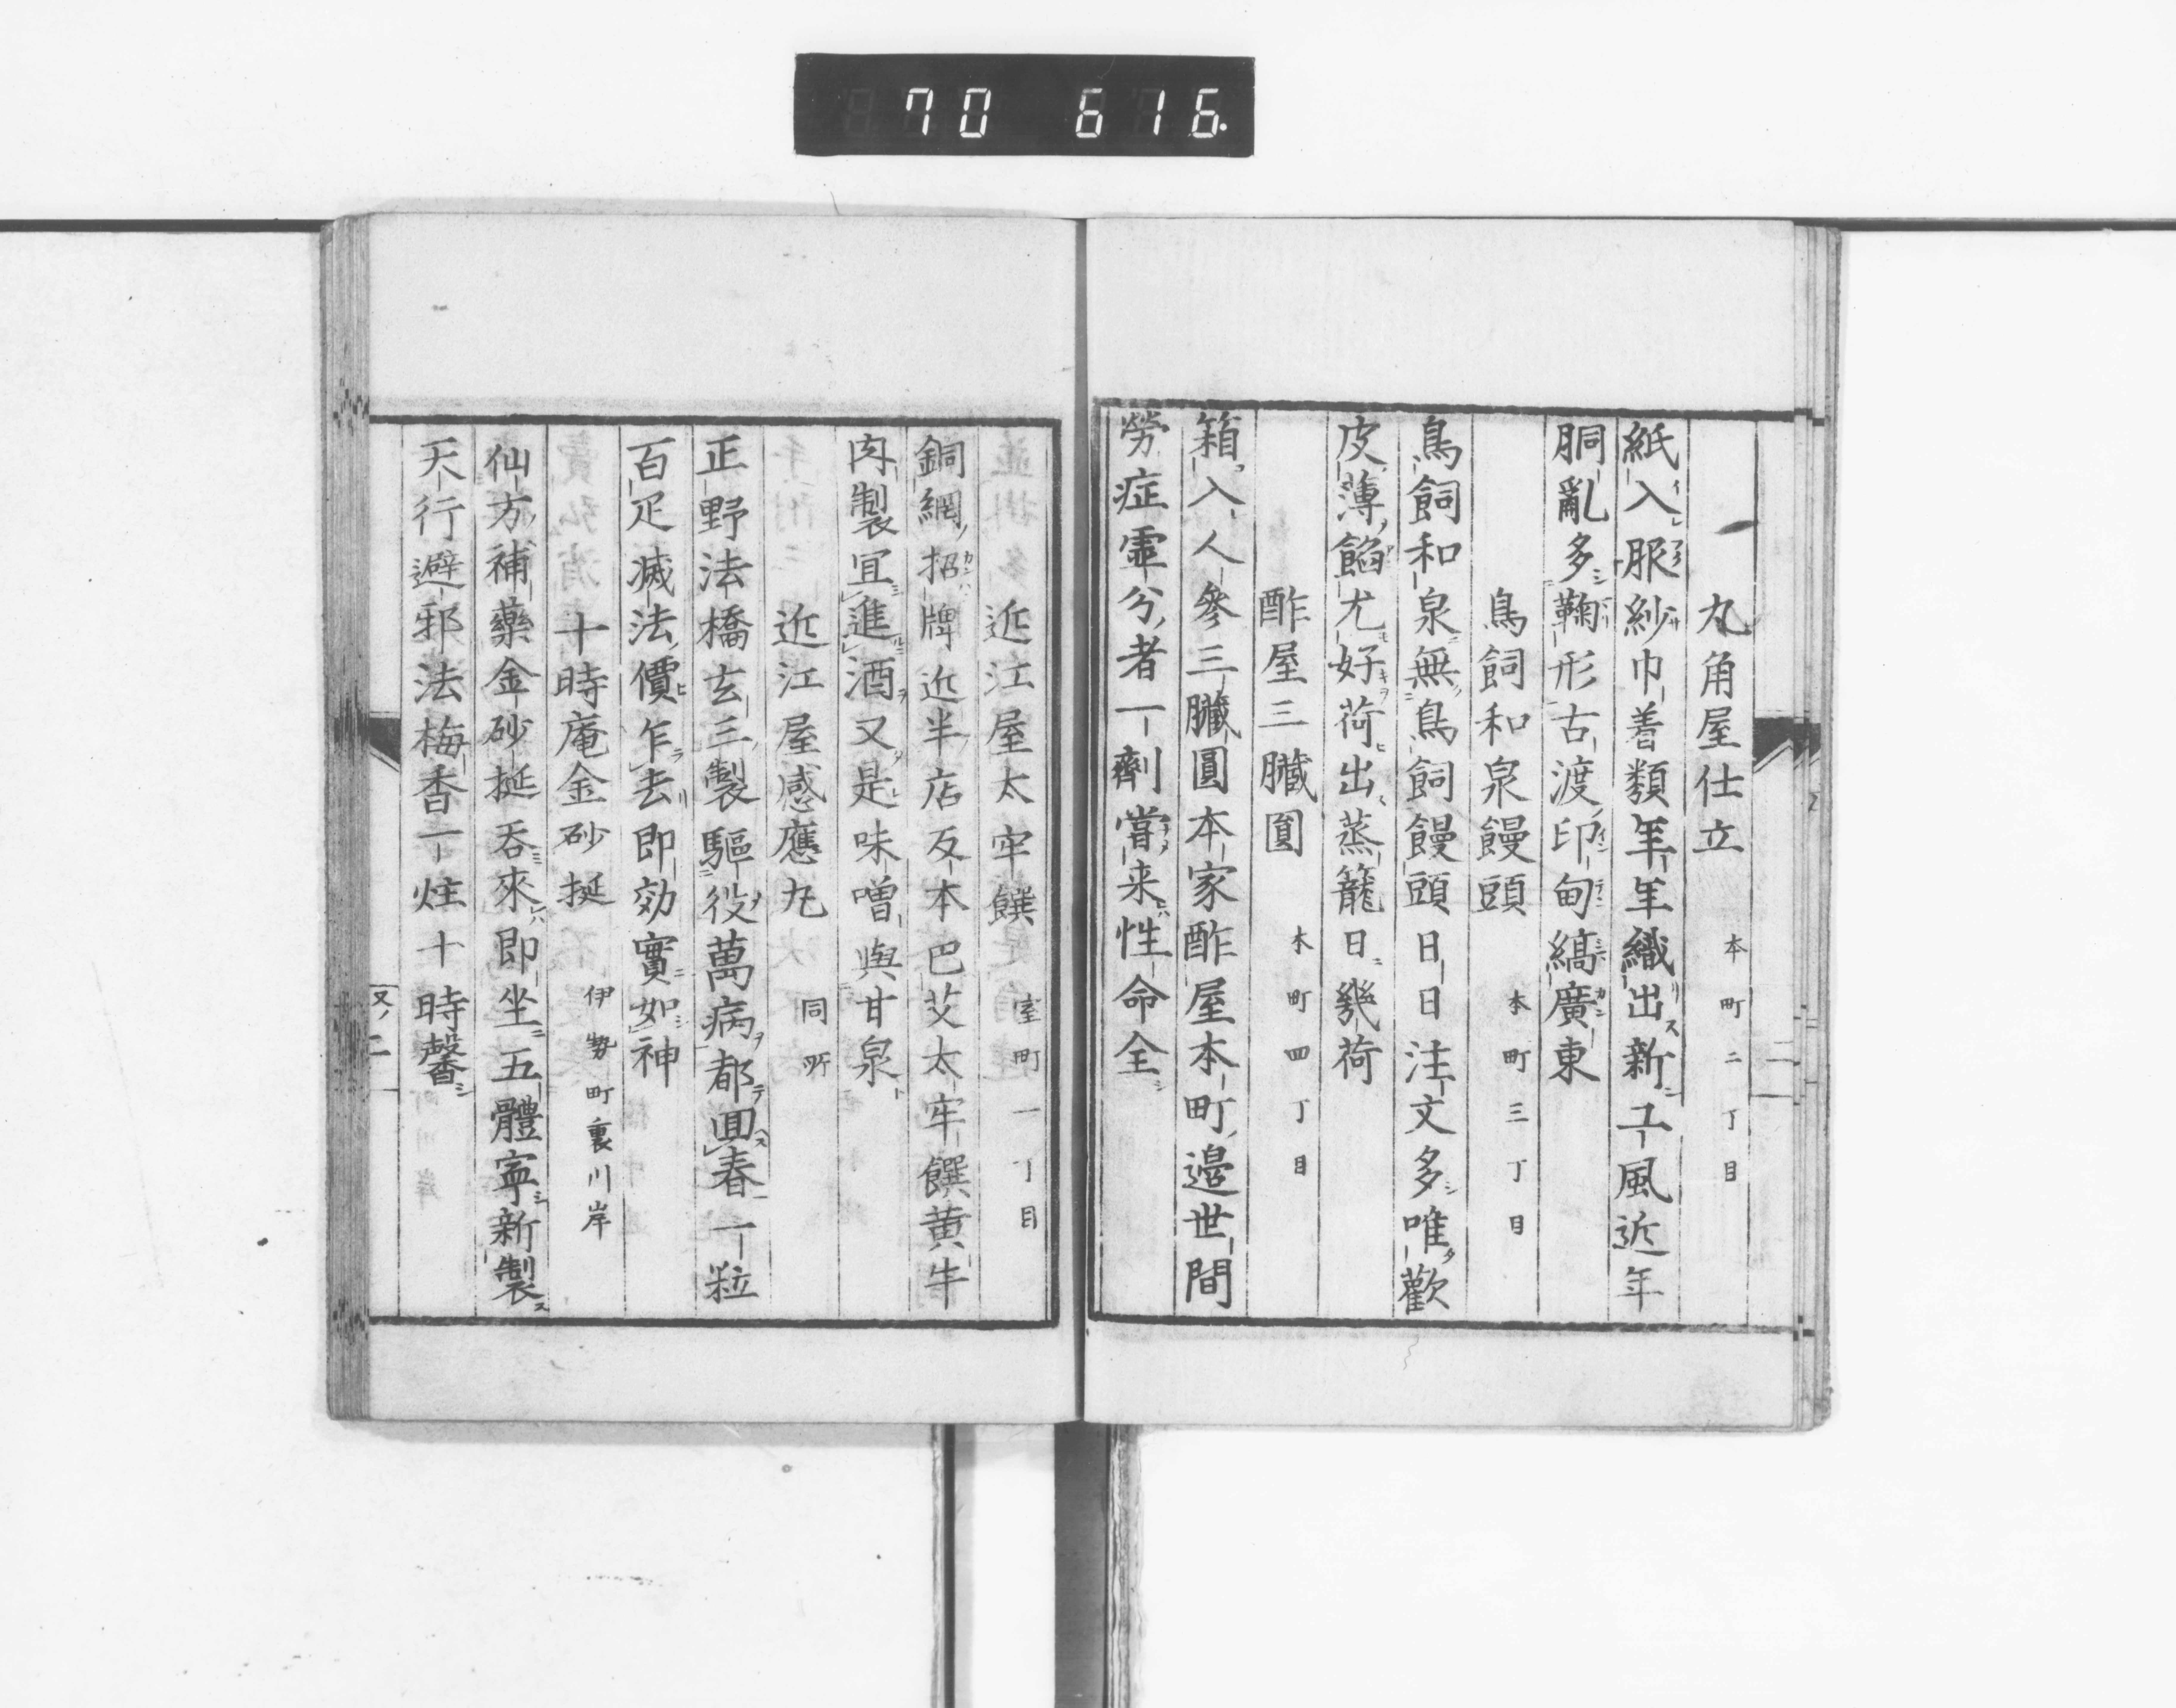 70 616.
丸角屋仕立 本町二丁目
紙入服紗巾着類年年織出新工風近年
胴亂多鞠形古渡印甸縞廣東
鳥飼和泉饅頭 本町三丁目
鳥飼和泉無鳥飼饅頭日日注文多唯歡
皮薄餡尤好荷出蒸籠日幾荷
酢屋三臓圓 本町四丁目
箱入人參三臓圓本家酢屋本町邉世間
勞症虛分者一劑嘗来性命全
近江屋太牢饌 室町一丁目
銅網招牌近半店反本巴艾太牢饌黄牛
肉製宜進酒又是味噌與甘泉
近江屋感應丸 同所
正野法橋玄三製驅役萬病都回春一粒
百疋減法價乍去即効實如神
十時庵金砂挻 伊勢町裏川岸
仙方補藥金砂挻呑來即坐五體寧新製
天行避邪法梅香一炷十時馨
又ノ二